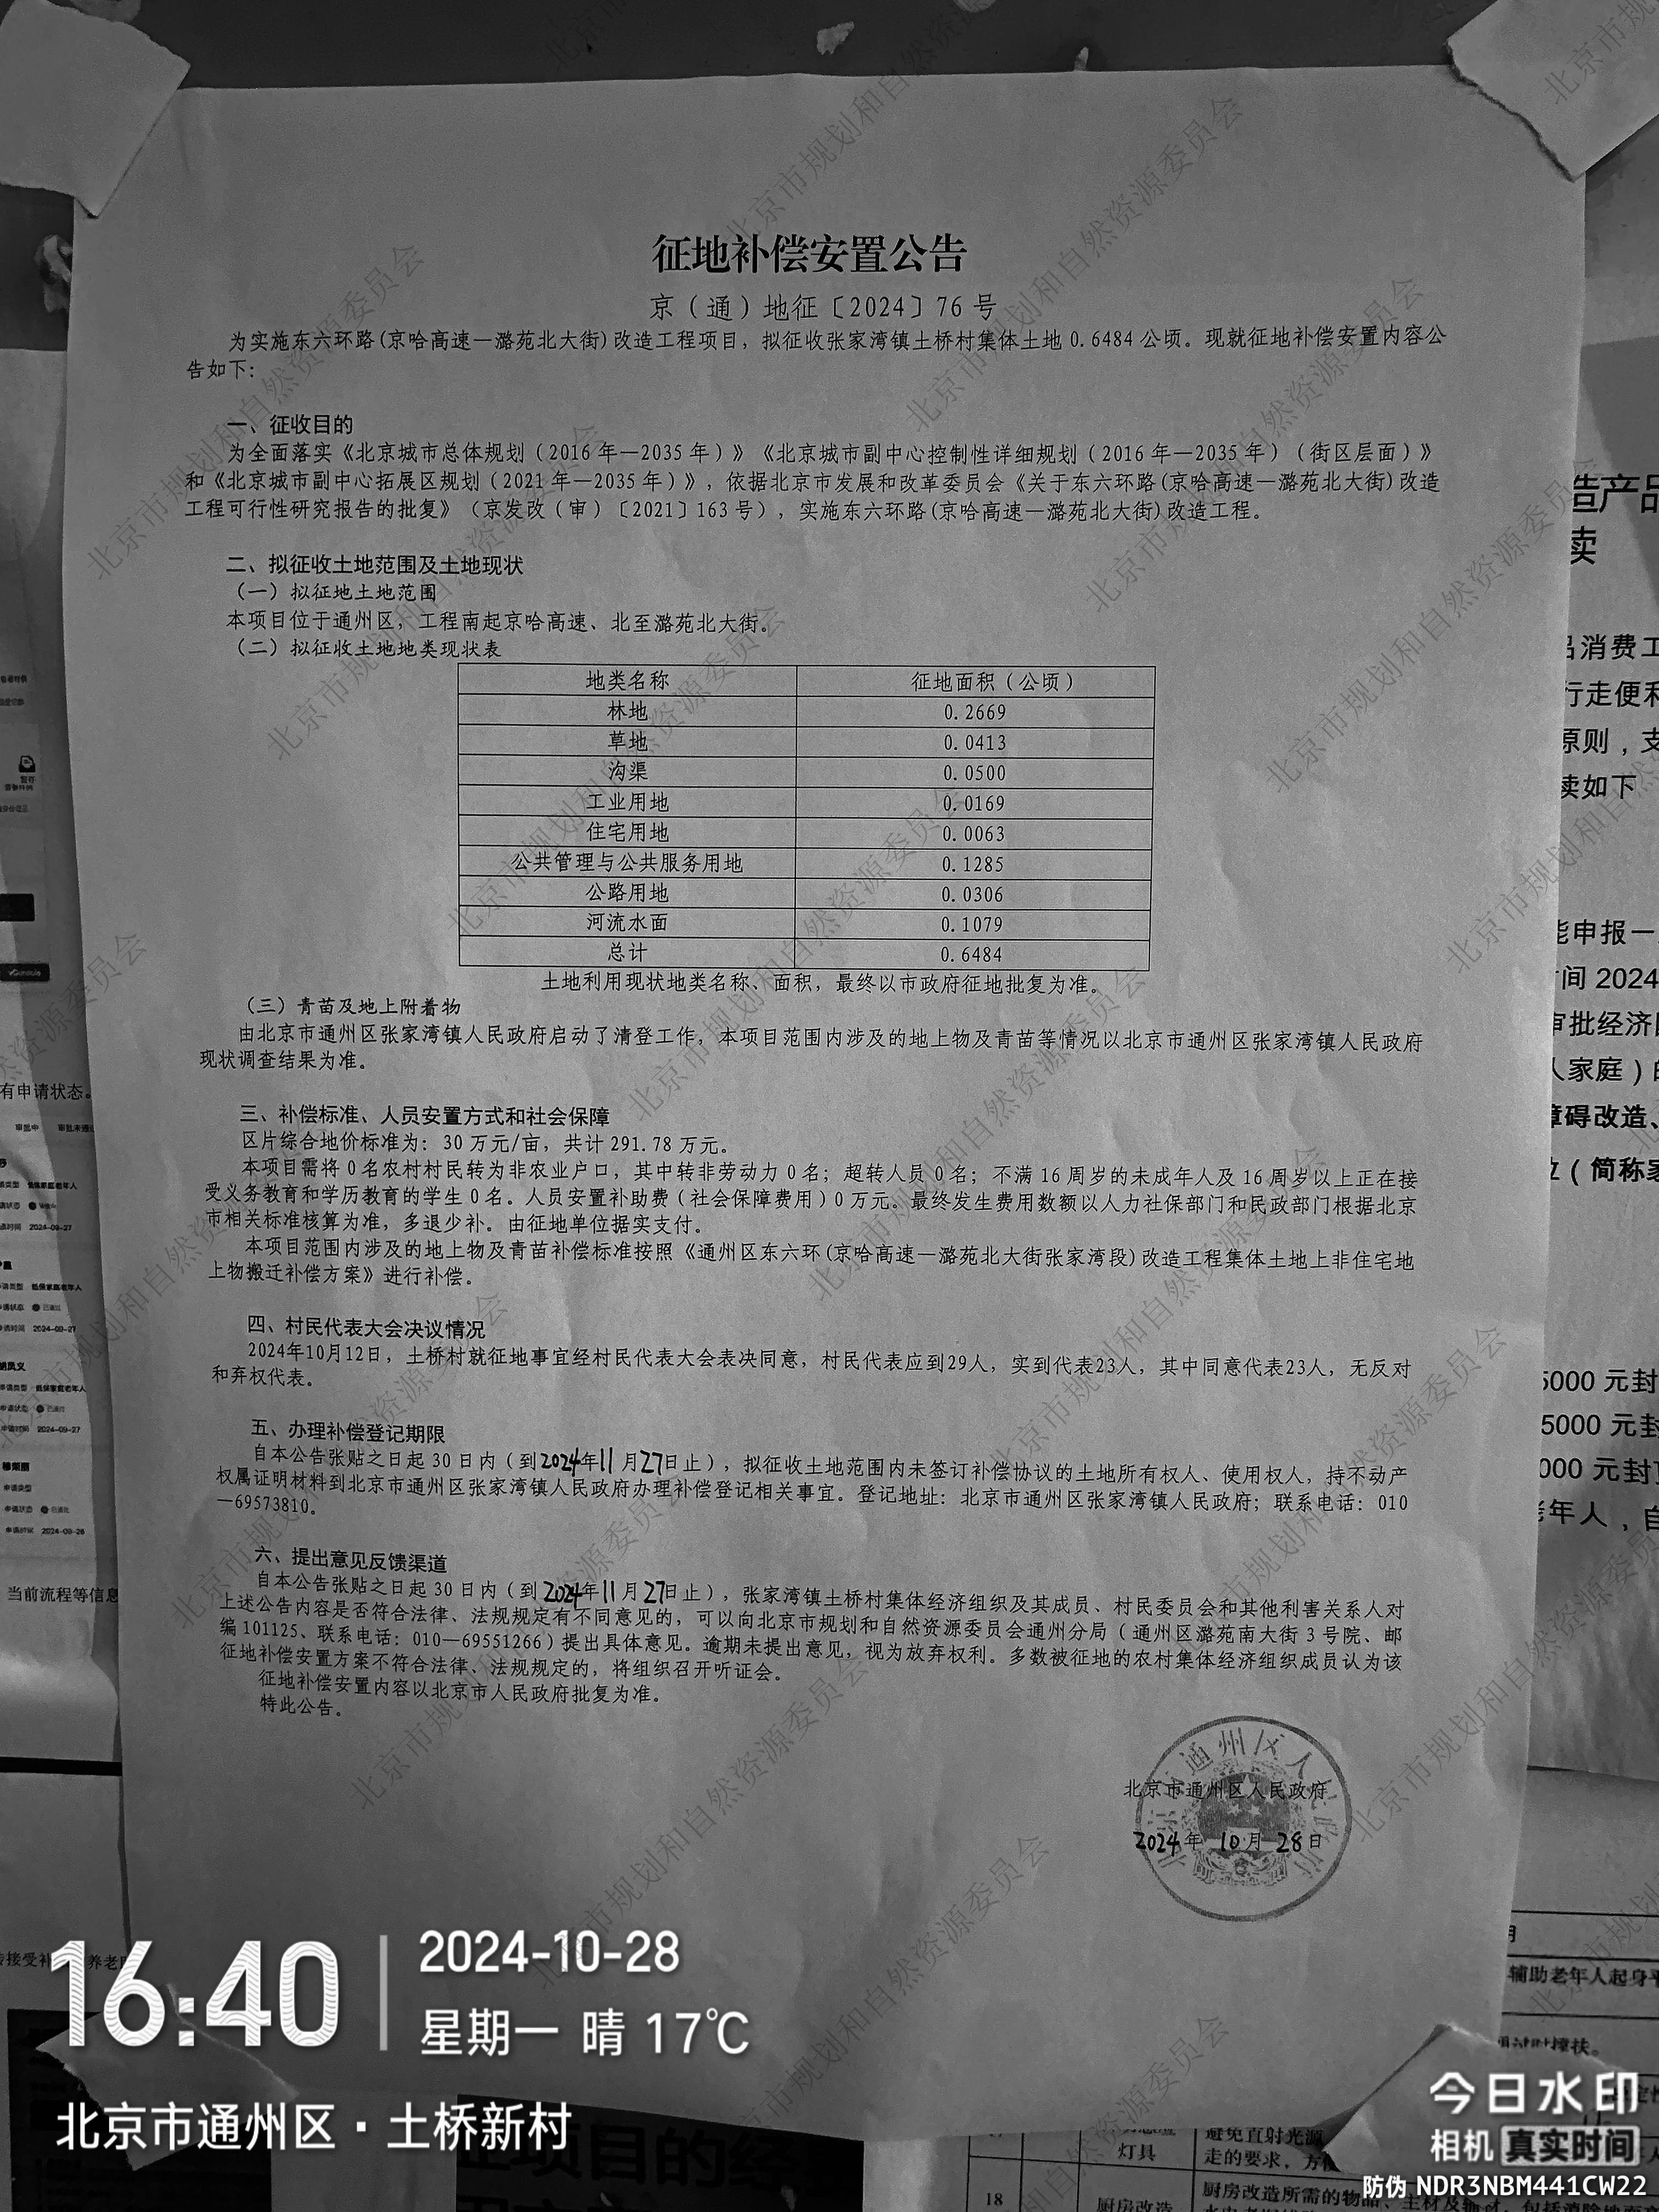 征地补偿安置公告
京（通）地征〔2024〕76 号
为实施东六环路(京哈高速—潞苑北大街)改造工程项目，拟征收张家湾镇土桥村集体土地 0.6484 公顷。现就征地补偿安置内容公
告如下：
一、征收目的
为全面落实《北京城市总体规划（2016 年—2035 年）》《北京城市副中心控制性详细规划（2016 年—2035 年）（街区层面）》
和《北京城市副中心拓展区规划（2021 年—2035 年）》，依据北京市发展和改革委员会《关于东六环路(京哈高速—潞苑北大街)改造
工程可行性研究报告的批复》（京发改（审）〔2021〕163 号），实施东六环路(京哈高速—潞苑北大街)改造工程。
二、拟征收土地范围及土地现状
（一）拟征地土地范围
本项目位于通州区，工程南起京哈高速、北至潞苑北大街。
（二）拟征收土地地类现状表
地类名称 征地面积（公顷）
林地 0.2669
草地 0.0413
沟渠 0.0500
工业用地 0.0169
住宅用地 0.0063
公共管理与公共服务用地 0.1285
公路用地 0.0306
河流水面 0.1079
总计 0.6484
土地利用现状地类名称、面积，最终以市政府征地批复为准。
（三）青苗及地上附着物
由北京市通州区张家湾镇人民政府启动了清登工作，本项目范围内涉及的地上物及青苗等情况以北京市通州区张家湾镇人民政府
现状调查结果为准。
三、补偿标准、人员安置方式和社会保障
区片综合地价标准为：30 万元/亩，共计 291.78 万元。
本项目需将 0 名农村村民转为非农业户口，其中转非劳动力 0 名；超转人员 0 名；不满 16 周岁的未成年人及 16 周岁以上正在接
受义务教育和学历教育的学生 0 名。人员安置补助费（社会保障费用）0 万元。最终发生费用数额以人力社保部门和民政部门根据北京
市相关标准核算为准，多退少补。由征地单位据实支付。
本项目范围内涉及的地上物及青苗补偿标准按照《通州区东六环(京哈高速—潞苑北大街张家湾段)改造工程集体土地上非住宅地
上物搬迁补偿方案》进行补偿。
四、村民代表大会决议情况
2024年10月12日，土桥村就征地事宜经村民代表大会表决同意，村民代表应到29人，实到代表23人，其中同意代表23人，无反对
和弃权代表。
五、办理补偿登记期限
自本公告张贴之日起 30 日内（到2024年11月27日止），拟征收土地范围内未签订补偿协议的土地所有权人、使用权人，持不动产
权属证明材料到北京市通州区张家湾镇人民政府办理补偿登记相关事宜。登记地址：北京市通州区张家湾镇人民政府；联系电话：010
—69573810。
六、提出意见反馈渠道
自本公告张贴之日起 30 日内（到2024年11月27日止），张家湾镇土桥村集体经济组织及其成员、村民委员会和其他利害关系人对
上述公告内容是否符合法律、法规规定有不同意见的，可以向北京市规划和自然资源委员会通州分局（通州区潞苑南大街 3 号院、邮
编 101125、联系电话：010—69551266）提出具体意见。逾期未提出意见，视为放弃权利。多数被征地的农村集体经济组织成员认为该
征地补偿安置方案不符合法律、法规规定的，将组织召开听证会。
征地补偿安置内容以北京市人民政府批复为准。
特此公告。
北京市通州区人民政府
2024年 10月 28日
北京市规划和自然资源委员会
16:40
2024-10-28
星期一 晴 17℃
北京市通州区·土桥新村
今日水印
相机 真实时间
防伪 NDR3NBM441CW22
造产品
卖
品消费工
行走便利
原则，支
卖如下
能申报一
时间 2024
审批经济
人家庭）的
障碍改造、
位（简称家
5000 元封
5000 元封
000 元封顶
老年人，自
辅助老年人起身平
灯具
避免直射光源
走的要求，方便
18
厨房改造
有申请状态。
当前流程等信息